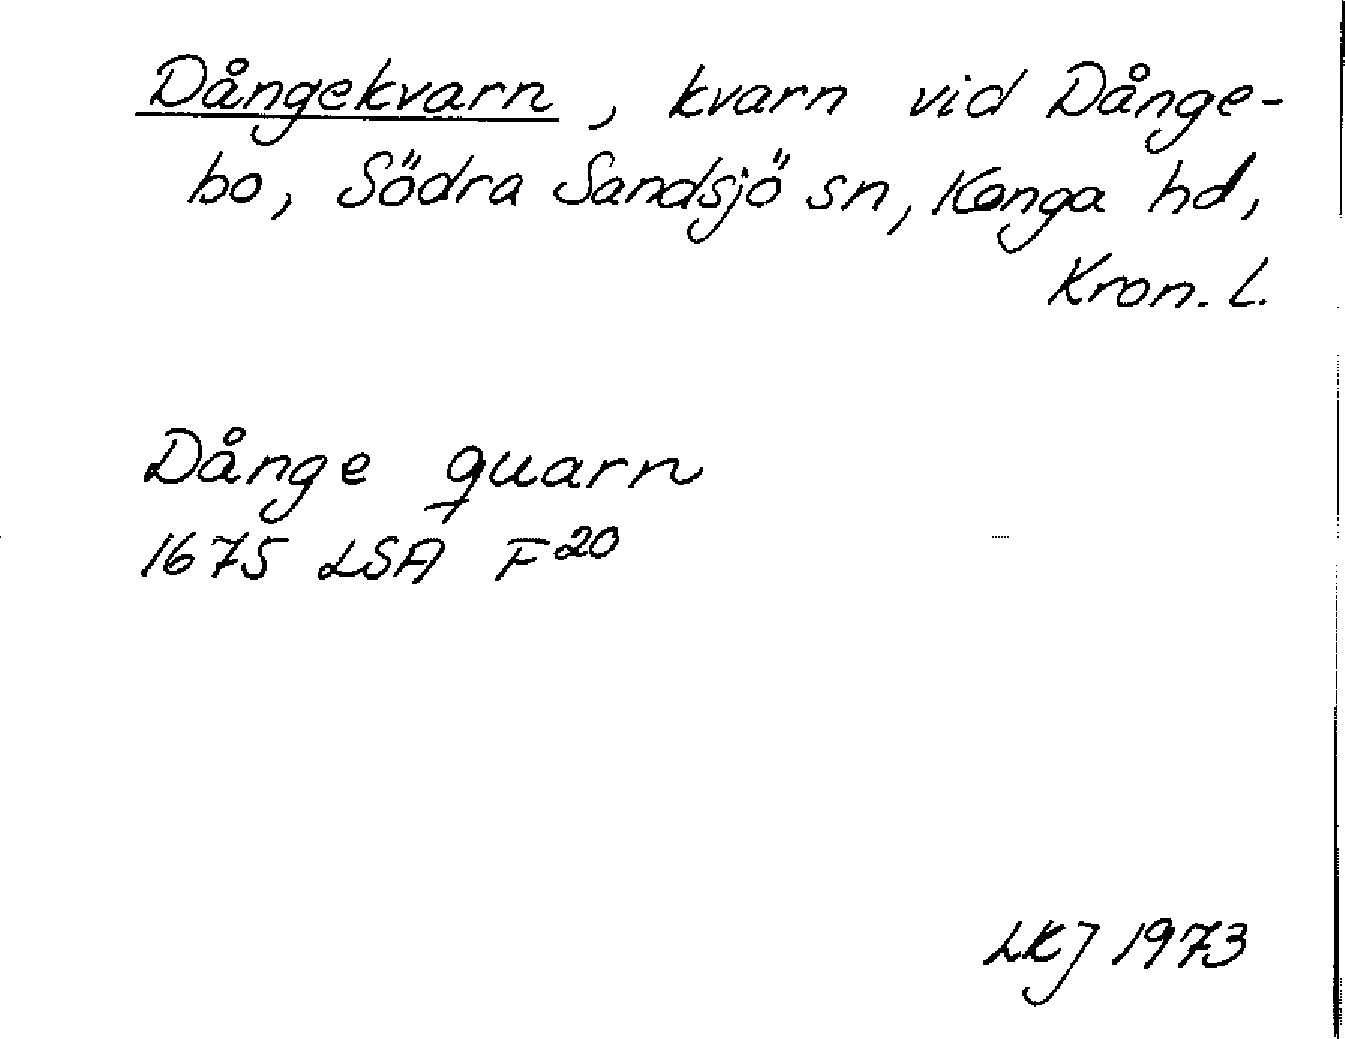 Dångekvarn, kvarn vid Dånge-
bo, Södra Sandsjö sn, Konga hd,
Kron. l.
Dånge quarn
1675 LSA F20
LKJ 1973